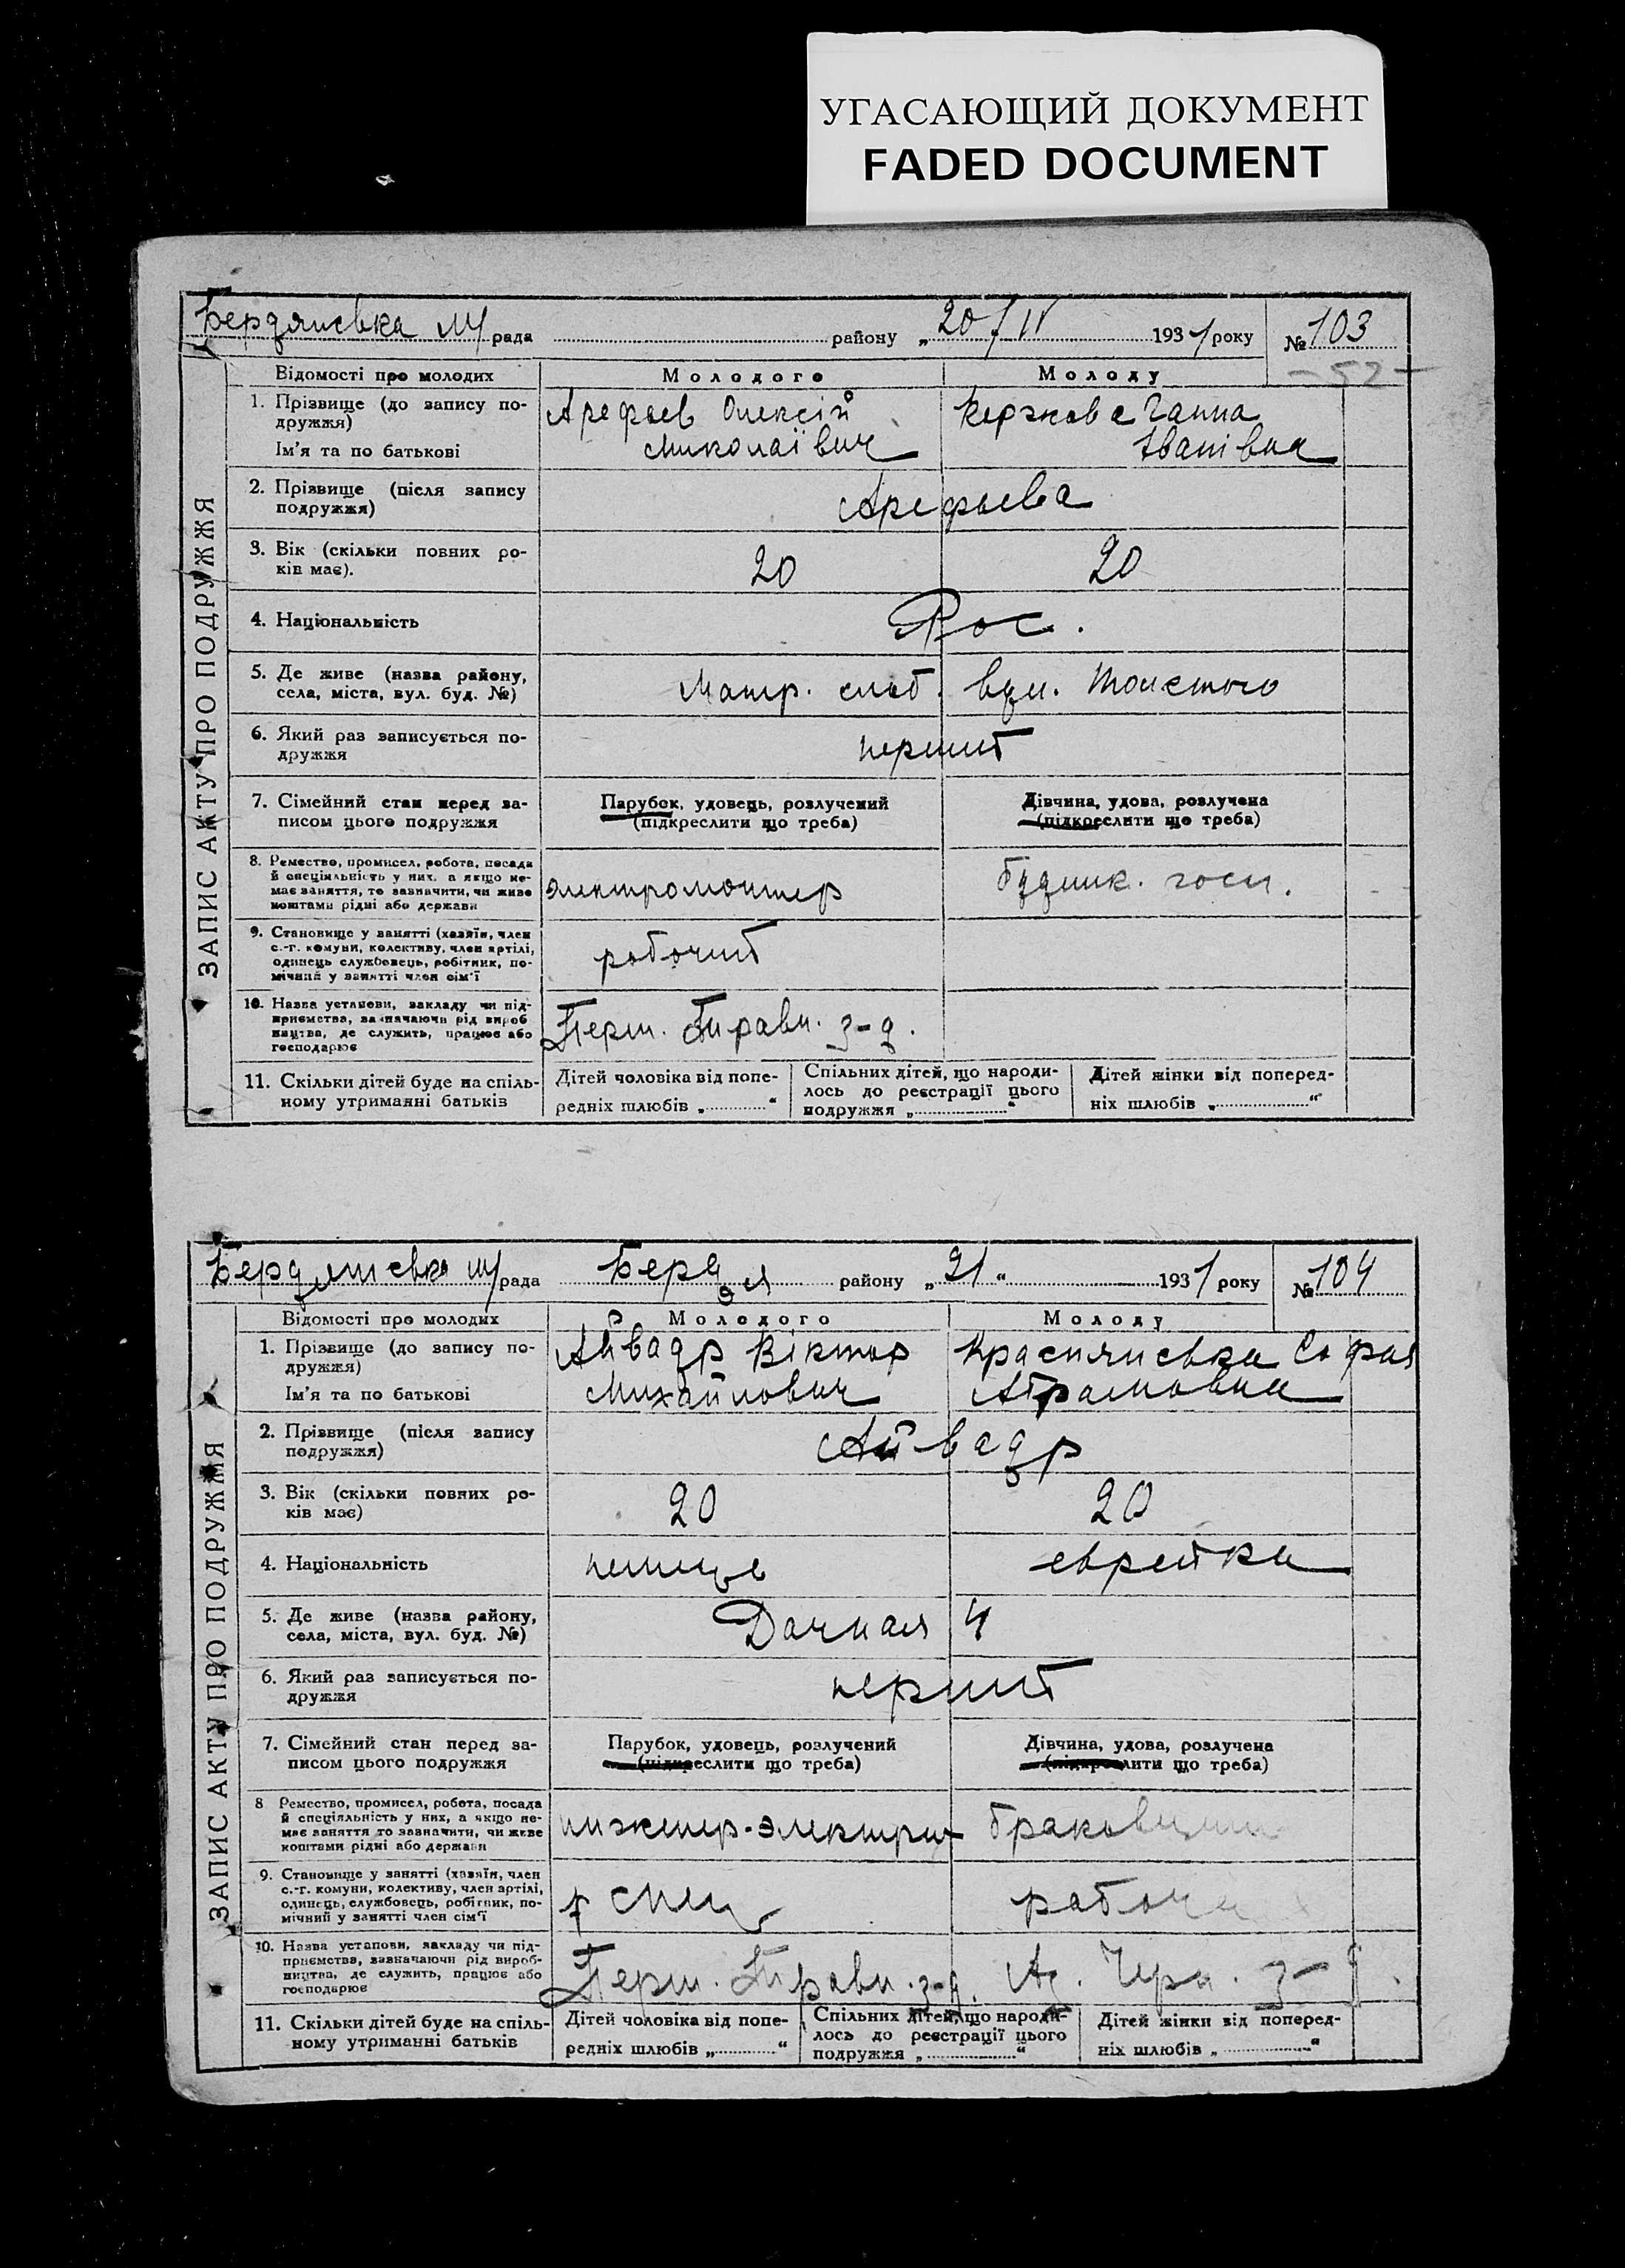 УГАСАЮЩИЙ ДОКУМЕНТ
FADED DOCUMENT
Бердянська м/рада района „20/IV 1931 року № 103
- 52 -
ЗАПИС АКТУ ПРО ПОДРУЖЖЯ
Відомості про молодих Молодого Молоду
1. Прізвище (до запису по- Арефьев Олексій Ганна
дружжя)
Ім'я та по батькові Миколаївич Іванівна
2. Прізвище (після запису Арефьева
подружжя)
3. Вік (скільки повних ро- 20 20
ків має).
4. Національність Рос.
5. Де живе (назва району, Матр. слоб. вул. Толстого
села, міста, вул. буд. №)
6. Який раз записується по- перший
дружжя
7. Сімейний стан перед за- Парубок, удовець, розлучений Дівчина, удова, розлучена
писом цього подружжя (підкреслити що треба) (підкреслити що треба)
8. Ремество, промисел, робота, посада
й спеціяльність у них, а якщо не-
має заняття, то зазначити, чи живе электромонтер будинк. госп.
коштами рідні або держави
9. Становище у занятті (хазяїн, член
с.-г. комуни, колективу, член артілі, робочий
одинець службовець, робітник, по-
мічний у занятті член сім'ї
10. Назва установи, закладу чи під-
приємства, зазначаючи рід вироб Перш. Травн. з-д.
ництва, де служить, працює або
господарює
11. Скільки дітей буде на спіль- Дітей чоловіка від попе- Спільних дітей, що народи- Дітей жінки від поперед-
ному утриманні батьків редніх шлюбів „ “ лось до реєстрації цього ніх шлюбів „ “
подружжя „ “
Бердянська м/рада Бердян району „21“ 1931 року № 104
ЗАПИС АКТУ ПРО ПОДРУЖЖЯ
Відомості про молодих Молодого Молоду
1. Прізвище (до запису по- Айвадр Віктор Краснянська Софія
дружжя)
Ім'я та по батькові Михайлович Абрамовна
2. Прізвище (після запису Айвадр
подружжя)
3. Вік (скільки повних ро- 20 20
ків має)
4. Національність немець еврейка
5. Де живе (назва району, Дачная 4
села, міста, вул. буд. №)
6. Який раз записується по- перший
дружжя
7. Сімейний стан перед за- Парубок, удовець, розлучений Дівчина, удова, розлучена
писом цього подружжя (підкреслити що треба) (підкреслити що треба)
8 Ремество, промисел, робота, посада
й спеціяльність у них, а якщо не-
має заняття то зазначити, чи живе инженер-электрик браковщик
коштами рідні або держави
9. Становище у занятті (хазяїн, член
с.-г. комуни, колективу, член артілі, спец робоча
одинець, службовець, робітник, по-
мічний у занятті член сім'ї
10. Назва установи, закладу чи під-
приємства, зазначаючи рід вироб- Перш. Травн. з-д. Аз. Черн. з-д.
ництва, де служить, працює або
господарює
11. Скільки дітей буде на спіль- Дітей чоловіка від попе- Спільних дітей, що народи- Дітей жінки від поперед-
ному утриманні батьків редніх шлюбів „ “ лось до реєстрації цього ніх шлюбів „ “
подружжя „ “